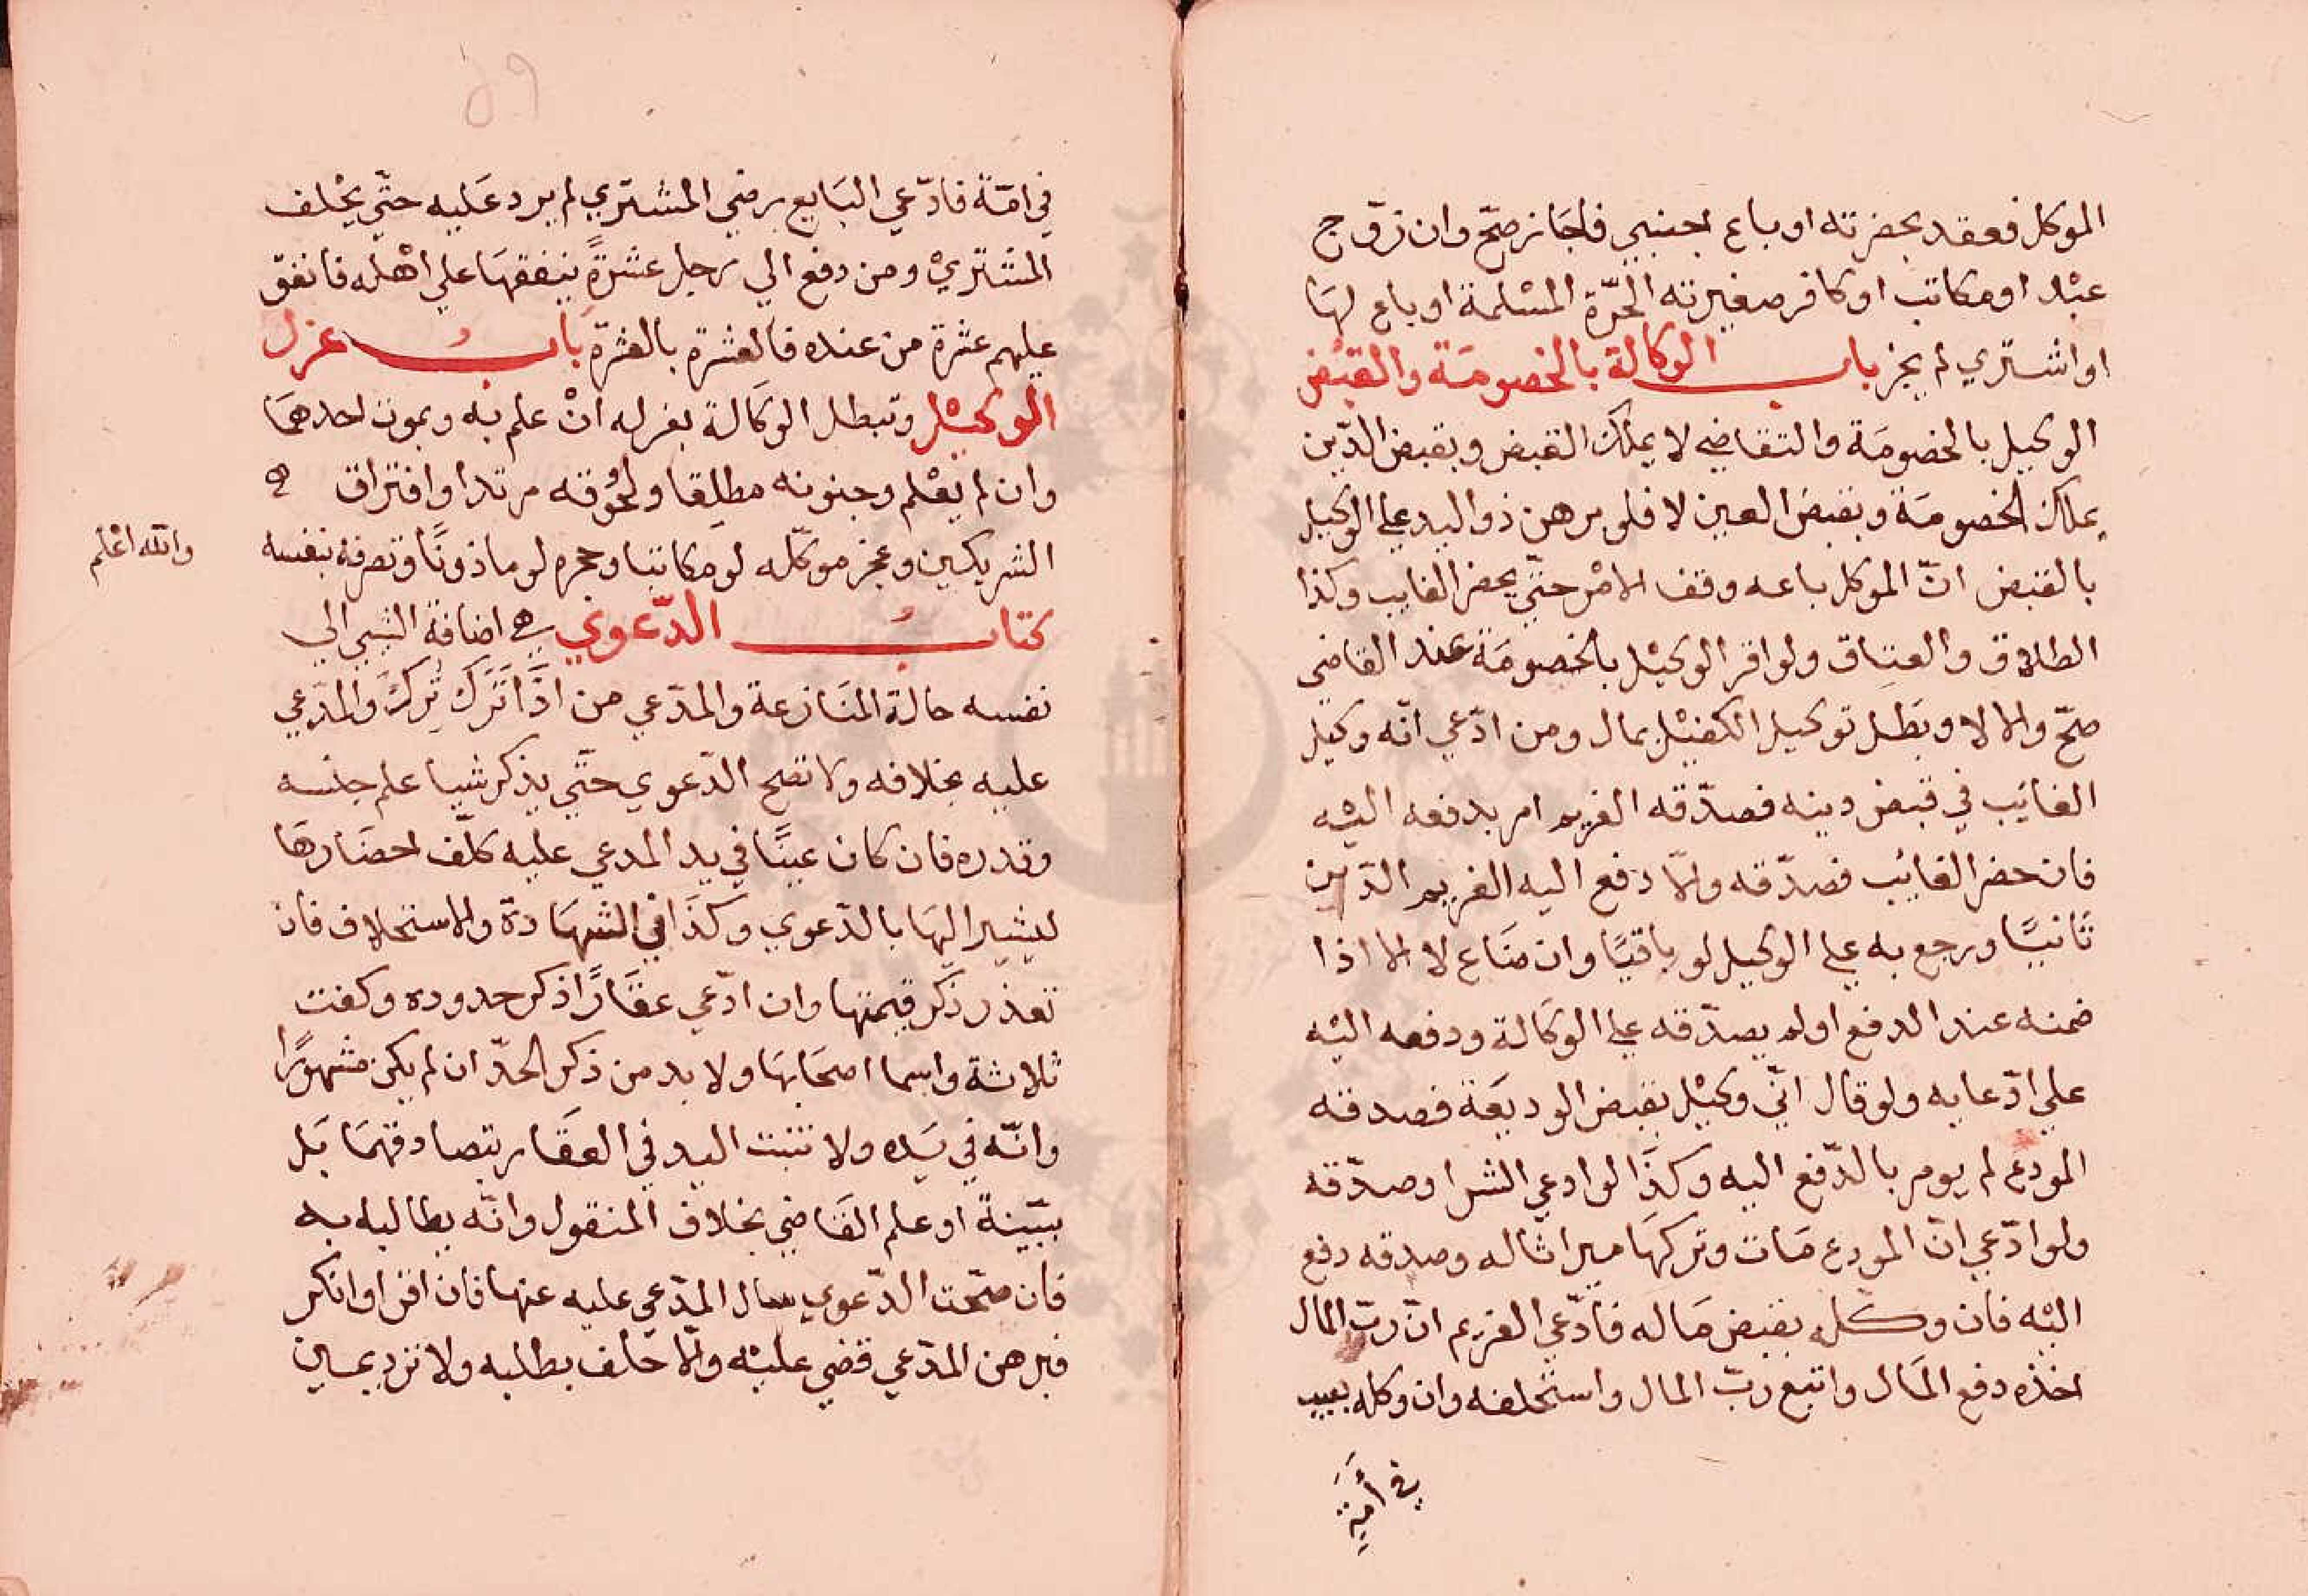 الموكل فعقد بحضرته او باع اجنبي فاجَاز صحّ وان زوّج
عبْد او مكاتب او كافر صغيرته الحرّة المسْلمة او باع لهَا
او اشتري لم يجز باب الوكالة بالخصومَة والقبْض
الوكيل بالخصومَة والتقاضي لا يملك القبض وبقبض الدّين
يملك الخصومَة وبقبض العين لا فلو برهن ذو اليد علي الوكيل
بالقبض انّ الموكل باعه وقف الامْر حتّي يحضر الغايب وكذا
الطلاق والعتاق ولو اقر الوكيْل بالخصومَة عند القاضي
صحّ والا لا وبَطل توكيل الكفيْل بمال ومن ادّعي انّه وكيل
الغايَب في قبض دينه فصدّقه الغريم امر بدفعه اليْه
فان حضر الغايَب فصدّقه والّا دفع اليه الغريم الدّين
ثانيًا ورجع به علي الوكيل لو باقيًا وان ضَاع لا الا اذا
ضمنه عند الدفع او لم يصدّقه علي الوكَالة ودفعه اليْه
علي ادّعايه ولو قال انّي وكيْل بقبض الوديعَة فصدقه
المودع لم يومر بالدّفع اليه وكذَا لو ادعي الشرا وصدّقه
ولو ادّعي انّ المودع مَات وتركهَا ميراثا له وصدقه دفع
اليْه فان وكله بقبض مَاله فادّعي الغريم انّ ربّ المال
اخذه دفع المَال واتبع ربّ المال واستحْلفه وان وكله بعيب
في أمَة
٥٩
في امَة فادّعي البَايع رضي المشتري لم يرد عَليه حتّي يحْلف
المشتريْ ومن دفع الي رجل عشرةً ينفقهَا علي اهْله فانفق
عليهم عشرة من عنده فالعشرة بالعشرة بابُ عزل
الوكيْل وتبطل الوكَالة بعزله انْ علم به وبموت احدهمَا
وان لم يعْلم وجنونه مطبقا ولحُوقه مرتدا وافتراق
الشريكين وعجز موكّله لو مكاتبا وحجره لو ماذونًا وتصرفه بنفسه
والله اعْلم
كتابُ الدّعوي هي اضافة الشي الي
نفسه حالة المنَازعة والمدّعي من اذَا تَرَك تُرِكَ والمدّعي
عليه بخلافه ولا تصح الدّعوي حتّي يذكر شيا علم جنسه
وقدره فان كان عينًا في يد المدعي عليه كلّف احضَارهَا
ليشير اليهَا بالدّعوي وكذَا في الشهَادة والاستحلاف فان
تعذّر ذكر قيمتها وان ادّعي عقَارًا ذكر حدوده وكفت
ثلاثة واسما اصحَابهَا ولا بد من ذكر الجدّ ان لم يكن مشهورًا
وانّه في يَده ولا تثبت اليد في العقَار بتصادقهمَا بَل
ببيّنة او علم القَاضي بخلاف المنقول وانّه يطالبه به
فان صحّت الدّعوي سال المدّعي عليه عنها فان اقر او انكر
فبرهن المدّعي قضي عليْه والّا حلف بطلبه ولا ترد يمين